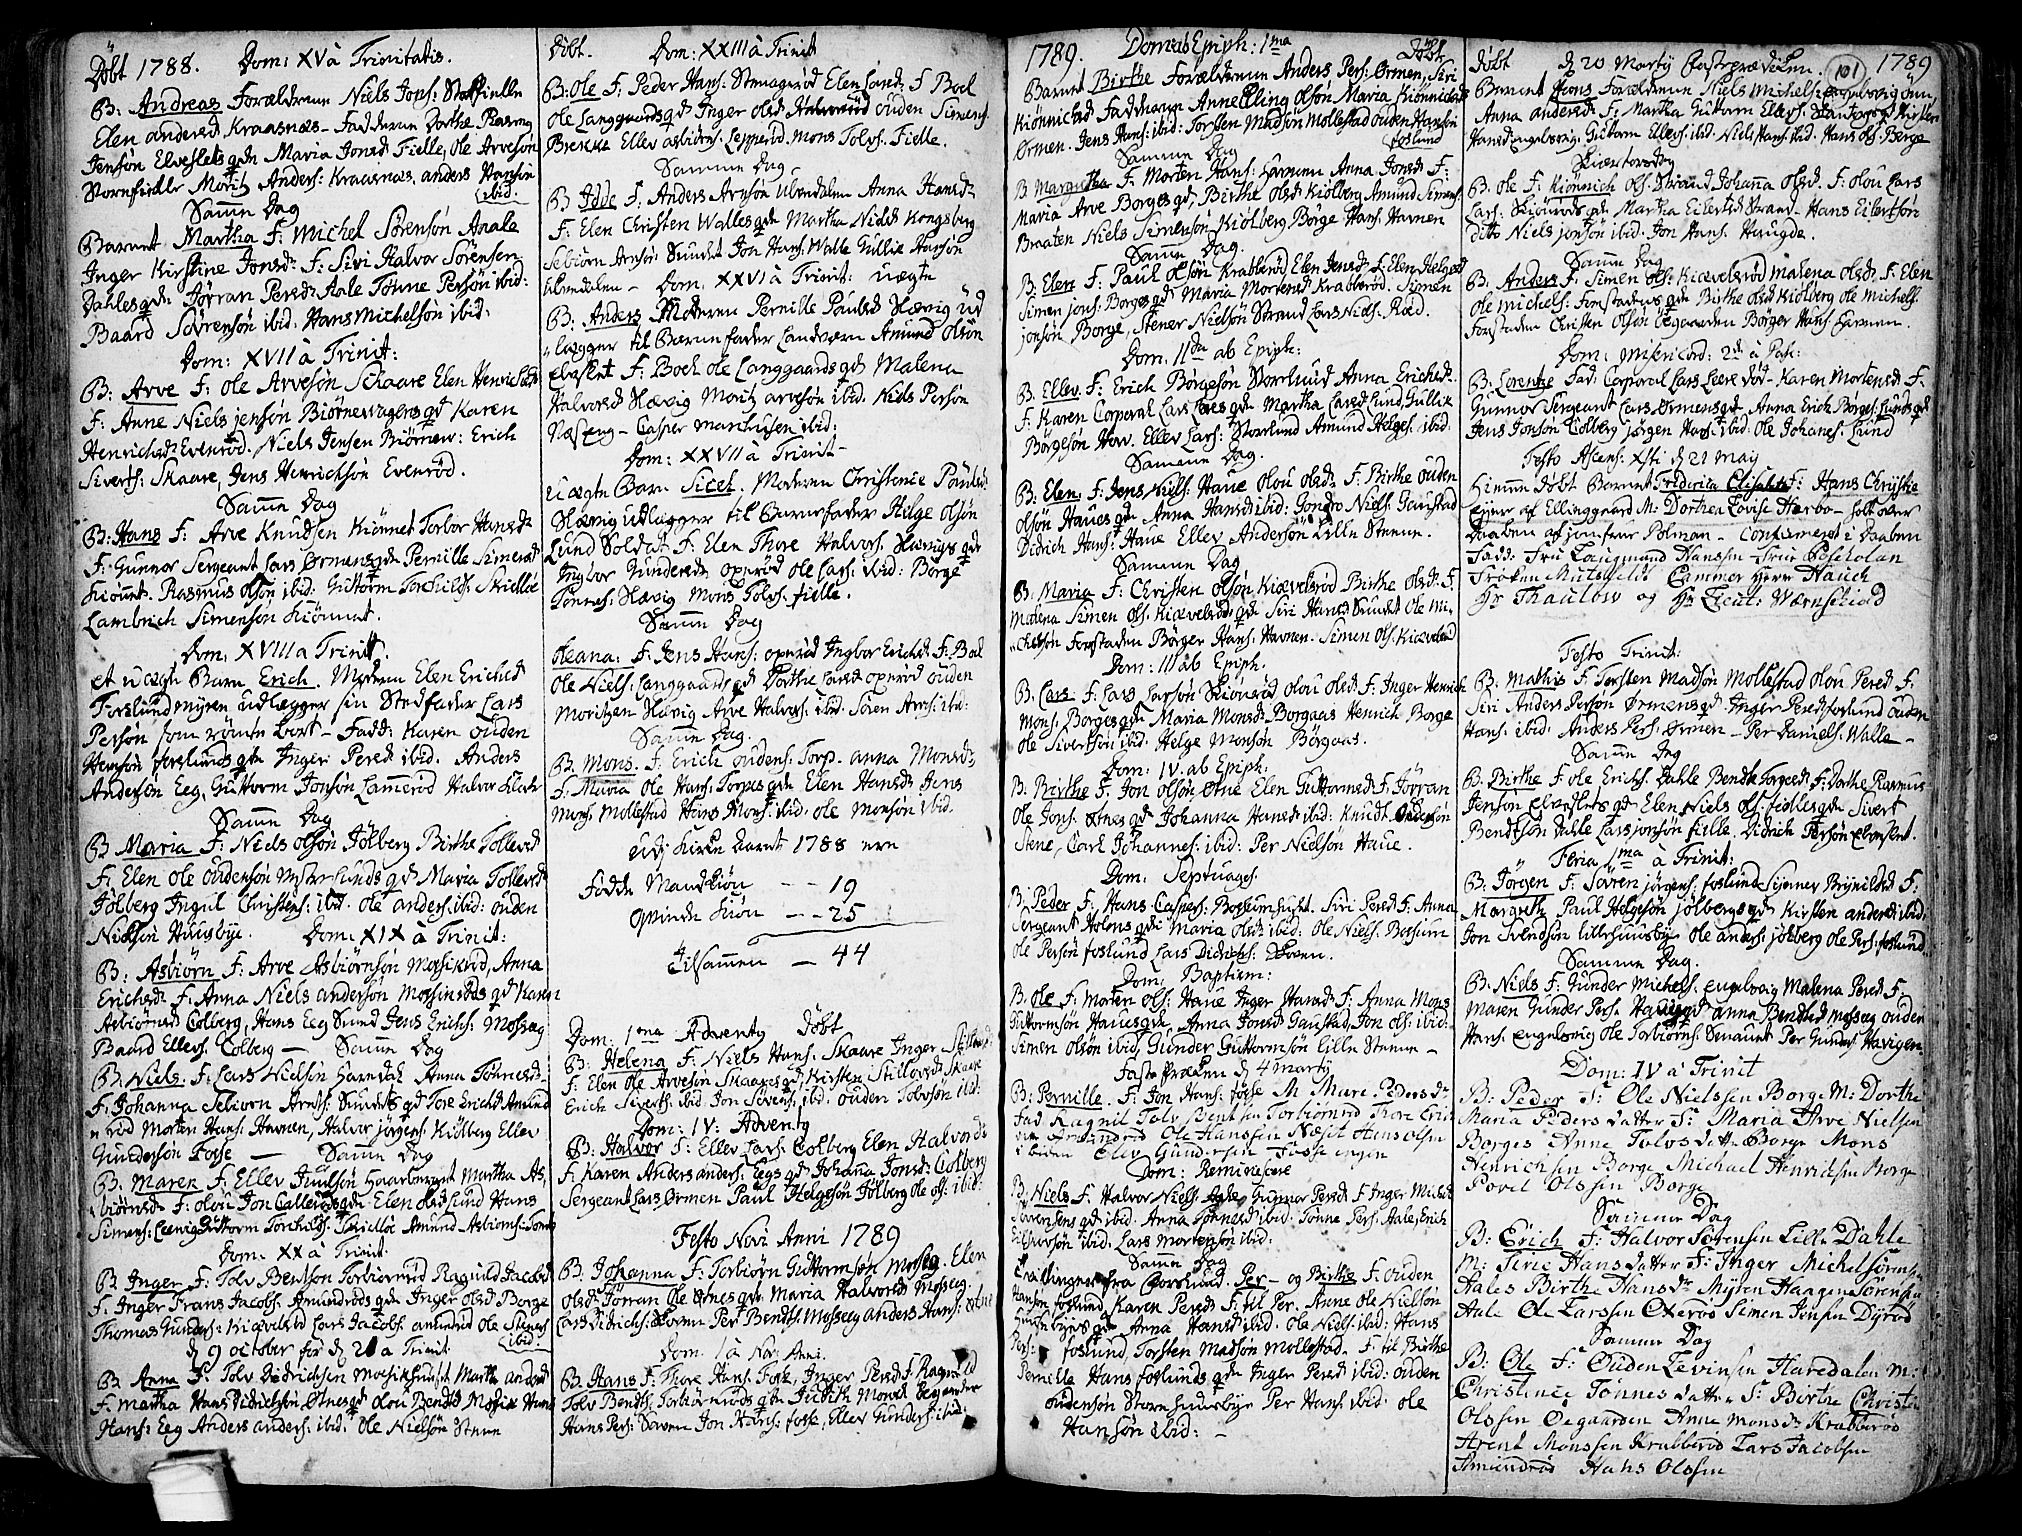 Döbt 1788. Dom: XV à Trinitatis.
B: Andreas Forældrene Niels Jons:
Elen andersd Kraasnæs - Fadderne Dorthe Rasmus
Jensøn Elveslets qd Maria Jonsd Fielle, ole Arvesøn
Stornfielle Moritz Anders: Kraasnæs, anders Hansøn
ibid:
Samme Dag
Barnet Martha F: Michel Sörensøn Aale
Inger Kirstine Jonsd: F: Siri Halvor Sörensen
Dahles qd Jörran Persd: Aale Tönne Persøn ibid:
Baard Sörensøn ibid: Hans Michelsøn ibid:
Dom: XVII à Trinit:
B: Arve F: ole Arvesøn Skaare Elen Henrichsd
F: Anne Niels jensøn Biörnevagers qd Karen
Henrichsd: Evenröd. Niels Jensen Biörnev: Erich
Siverts: Skaare, Jens Henrichsøn Evenröd.
Samme Dag
B: Hans F: Arve Knudsen Kiönnet Torbor Hansd:
F: Gunnor Sergeant Lars Ørmens qd Pernille Simensd
Kiönnt. Rasmus olsøn ibid: Guttorm Torchilds: Skielle
Lambrich Simensøn Kiönnet.
Dom: XVIII à Trinit.
et uægte Barn Erich. Moderen Elen Erichsd
Forslundmyren udlægger sin Stedfader Lars
Persøn som römte bort - Fadd: Karen ouden
Hansøn forslunds qd Inger Persd ibid. Anders
Andersen Eeg, Guttorm Jonsøn Lammeröd Halvor
Samme Dag
B Maria F: Niels olsøn Jölberg Birthe Tollevsd
F: Elen ole oudensøn qd Maria Tollevsd
Jölberg Ingul Christens: ibid. ole anders: ibid: ouden
Nielsøn Huusbye. Dom: XIX à Trinit:
B: Asbiörn F: Arve Asbiörnsøn Mosikröd, Anna
Erichsd: F: Anna Niels andersøn qd Karen
Asbiörnsd Colberg, Hans Eeg Jens Erichs: Mosseg
Baard Ellevs: Colberg - Samme Dag
B: Niels: F: Lars Nielsen Harredal Anna Tönnesd:
F: Johanna Tebiorn Arnts: Sundets qd Tore Erichsd Amund
röd Morten Hans: Havnen, Halvor jörgens: Kiölberg Ellev
Gundersøn Fosse - Samme Dag
B: Maren F: Ellev Juulsøn Martha As,
biörnsd: F: olou Jon qd Elen olsd Lund Hans
Simens: Guttorm Torchilds: Skielle Amund Asbiorns:
Dom: XX à Trinit
B Inger F: Tolv Bentson Torbiörnröd Ragnild Jacobsd
F. Inger Frans Jacobs: Amundröds qd Inger olsd Borge
Thomas Gunders: Kiævelsröd Lars Jacobs: amundröd Ole Steners:
ibid:
d 9 october för d 21 à Trinit.
B Anna F: Tolv Didrichsen Marthe andersd
F. Martha Hans Didrichsøn Ötnes qd olou Bendtsd Mosseg Hans
Hans: Eeg Anders anders: ibid: ole Nielsøn Steene
Döbt. Dom: XXIII à Trinit
B: ole F: Peder Hans: Stenaegröd Elen F Boel
ole Langgaards qd Inger olsd ouden Simens:
Brekke Ellev asbiörns: Lepperöd. Mons Tolvs: Fielle.
Samme Dag
B: Idde F. Anders Arnsøn Ulvedalen Anna Hansd:
F. Elen Christen Walles qd Martha Nielsd Kongsberg
Tebiörn Arnsøn Sundet Jon Hans: Walle Gullik Hansøn
Ulvedalen - Dom: XXVI à Trinit: uægte
B: Anders Moderen Pernille Paulsd Hævig ud
lægger til Barnefader Landværn Amund olsøn
Elvestet F: Boel ole Langgaards qd Malena
Halvorsd Hævig Moritz arvesøn ibid. Niels Persøn
Næs eng - Casper marchusen ibid:
Dom: XXVII à Trinit -
Uægte Barn Sicel. Moderen Christence Pauls:
Hævig udlægger til Barnefader Helge olsøn
Lund Soldat F: Elen Thore Halvors: Hævigs qd
Ingbor Gundersd operöd ole Lars: ibid: Börge
Tönnes: Hævig Mons Tolvs: fielle.
Samme Dag
oleana: F: Jens Hans: operöd Ingbor Erichsd: F: Boel
ole Niels: Langgaards qd Dorthe Larsd operöd ouden
Moritzen Hævig Arve Halvors: ibid: Sören Arvs: ibid:
Samme Dag.
B: Mons. F: Erich oudens: Torp. anna Monsd:
F: Maria ole Hans: Torpes qd Elen Hansd: Jens
Mons: Mollestad Hans Mons: ibid: ole Monsøn ibid.
udj Kirke Aaret 1788 ere
Födde Mandkiön - - 19
Qvinde kiön - - 25
Tilsammen - 44
Dom: 1ma Adventy döbt
B: Helena F: Niels Hans: Skaare Inger
F: Elen ole Arvesøn Skaares qd, Kirsten Skaare
Erich Siverts: ibid Jon Sivers: ibid: ouden Tolvsøn ibid:
Dom: IV: Adventy
B: Halvor F: Ellev Lars: Colberg Elen Halvorsd:
F. Karen Anders anders: Eegs qd Johanna Jonsd: Colberg
Sergeant Lars Ormen Paul Helgesøn Jölberg ole ols: ibid:
Festo Novi Anni 1789
B: Johanna F: Torbiörn Guttormsøn Mosseg. Elen
olsd: Jörran Ole Ötnes qd: Maria Halvorsd Mosseg.
Lars Didrichs: Per Bendts. Mosseg anders Hans: Ötne
Dom: 1 à Nov: Anni
B: Hans F: Thore Hans: Fosse, Inger Persd F: Ragnild
Tolv Bendts: Torbiörnröds qd Judith Monsd Eeg ander
Hans Pers: Jon Hans: fosse, Ellev Gunders: ibid:
1789. Dom ab Epiph: 1ma Döbt
Barnet Birthe Forældrene Anders Pers: Ørmen, Siri
Kiönnichsd Faddrene Anne Elling olsøn Maria Kiönnichsd
Ørmen. Jens Hans: ibid: Torsten Madsøn Mollestad ouden Hansøn
foslund
Samme Dag
B Margretha F: Morten Hans: Havnen Anna Jonsd: F:
Maria Arve Borges qd, Birthe olsd Kiölberg Amund Simens:
Braaten Niels Simensøn Kiölberg Börge Hans: Havnen
Samme Dag.
B. Elen F: Paul olsøn Krabberöd Elen Jensd: F: Elen Helgesd
Simen jons: Borges qd Maria Mortensd Krabberöd. Simen
jonsøn Borge, Stener Nielsøn Strand Lars Niels: Röd.
Dom: IIda ab Epiph:
B. Ellev. F: Erich Börgesøn Storrlund Anna Erichsd.
F. Karen Corporal Lars qd Martha Larsd Lund, Gullik
Börgesøn Ellev Lars: Storlund Amund Helges: ibid.
Samme Dag.
B: Elen. F: Jens Niels: Haue olou olsd: F: Birthe ouden
olsøn Haues qd Anna Hansd ibid: Gondro Niels: Gaustad
Didrich Hans: Haue Ellev Andersøn Lille Steene.
Samme Dag
B: Maria F: Christen olsøn Kiævelsröd Birthe olsd. F.
Malena Simen ols: Kiævelsröds qd Siri Hansd Sundet ole Mi,
chelsøn Forstaden Börger Hans: Havnen. Simen ols: Kiævelsröd
Dom: III ab Epiph.
B. Lars F. Lars Larsøn olou olsd. F. Inger Henrich
Mons: Borges qd Maria Monsd: Borgaas Henrich Borge
ole Sivertsøn ibid. Helge Monsøn Börgaas.
Dom: IV. ab Epiph:
B. Birthe F. Jon olsøn Ötne Elen Guttormsd F. Jörran
ole Jons: Ötnes qd Johanna Hansd ibid: Knudt oudensøn
Stene, Carl Johannes: ibid: Per Nielsøn Haue.
Dom: Septuages:
B. Peder F: Hans Caspers: Siri Persd F: Anna
Sergeant Holms qd Maria olsd: ibid: ole Niels: Bossum
ole Persøn foslund Lars Didrichs:
Dom: Baptism:
B. ole F: Morten ols: Haue Inger Hansd: F: Anna Mons
Guttormsøn Haues qd Anna Jonsd Gaustad, Jon ols: ibid:
Simen olsøn ibid, Gunder Guttormsøn Lille Steene -
Faste Præken d 4 marty
B: Pernille. F: Jon Hans: fosse M Mare Pedersd:
Fad Ragnil Tolv Bentsen Torbiörnröd Thore Erich
Amundröd Ole Hanssen Næset Hans olsen
ibiden Elev Gundersen Fosse engen
Dom: Reminiscere
B. Niels F. Halvor Niels: Aale, Gunnor Persd F Inger Michel
Sörensens qd ibid. Anna Tönnesd ibid. Tönne Pers: Aale, Erich
ibid: Lars Mortensøn ibid:
Samme Dag
Tvillinger fra Per - og Birthe F: ouden
Hansøn foslund Karen Persd: F: til Per. Anne ole Nielsøn
qd Anna Hansd ibid. ole Niels: ibid: Hans
Pers: foslund, Torsten Madsøn Mollestad. F: til Birthe
Pernille Hans foslunds qd Inger Persd ibid: ouden
oudensøn Store huusbye Per Hans: ibid: ole
Hansøn ibid: -
döbt d 20 Marty Fasteprædiken. 101 1789
Barnet Hans Forældrene Niels Michels: Engelsvig
Anna andersd: F: Martha Guttorm Ellevs: Kirsten
Hansd Engelsvig Guttorm Ellevs: ibid. Niels Hans: ibid. Hans ols: Berge
Skiertorsdag
B. ole F. Kiönnich ols: Strand Johanna olsd. F: olou Lars
Lars: qd Martha Eilertsd Strand - Hans Eilertsøn
ditto Niels jonsøn ibid: Jon Hans: Haugde.
Samme Dag
B: Anders F: Simen ols: Kiævelsröd Malena olsd: F: Elen
ole Michels: Forstadens qd Birthe olsd Kiölberg ole Michels:
Forstaden Christen olsøn Öegaarden Börger Hans: Havnen.
Dom: Misericord: 2da à Pasc:
B: Lorentze Fad: Corporal Lars Leere död - Karen Mortensd F.
Gunnor Sergeant Lars Ørmens qd Anna Erich Börges: Lunds qd
Jens Jonsøn Colberg jörgen Hans: ibid: ole Johans: Lund
Festo Ascens: Xsti d 21 May
Hiemme döbt Barnet Friderica Elisabeth F: Hans Christie
Eyer af Ellinggaard M: Dorthea Lovise Harbo - holt over
Daaben af jomfrue Polman - Confirmeret i Daaben
Fadd: Fru Laugmand Hanssen - Frue
Froken Mutsfeldt Cammer Herr Hauch
Hr Thaulow og Hr Lieut: Wærnschiold
Festo Trinit:
B: Mathis F Torsten Madsøn Mollestad olou Persd F.
Siri Anders Persøn Ørmens qd Inger Persd forlund ouden
Hans: ibid. Anders Pers: Ørmen - Per Daniels: Walle -
Samme Dag
B. Birthe F ole Erichs: Dahle Bendte Torgersd: F: Dorthe Rasmus
Jensøn Elveslets qd Elen Niels ols: fielles qd Sivert
Bendtsøn Dahle Lars jonsøn fielle. Didrich Persøn Elvestet.
Feria 1ma à Trinit:
B. Jörgen F: Sören jörgens: foslund Brynildsd F:
Margreth Paul Helgesøn jölbergs qd Kirsten andersd ibid:
Jon Svendsøn Lillehuusbye ole anders: jölberg ole Pers: foslund
Samme Dag.
B: Niels F: Gunder Michels: engelsvig Malena Persd F:
Maren Gunder Pers: qd anna Bendtsd Mosseg ouden
Hans: engelsvig Ole Torbiörns: Per Gunders: Havigen.
Dom: IV a Trinit
B: Peder F: Ole Nielssen Borge M: Dorthe
Maria Peders datter F: Maria Arve Nielsen
Borges Anne Tolvs datter Borge Mons
Henrichsen Borge Michael Henrichsen Borge
Povel Olssen Borge
Sammæ Dag
B: Erich F: Halvor Sørensen Lille Dahle
M: Sirie Hans datter F: Inger Michel Sørensen
Aales Birthe Hans dr Myren Haagen Sørensen
Aale Ole Larssen Oxeröd Simen Jensen Dyröd
Sammæ Dag
B: Ole F: Ouden Levinsen Haredalen M:
Christence Tönnes datter F: Birthe Christen
Olssen Öegaarden Anne Monsdr Krabberöd
Arent Monssen Krabberöd Lars Jacobsen
Amundröd Hans Olssen